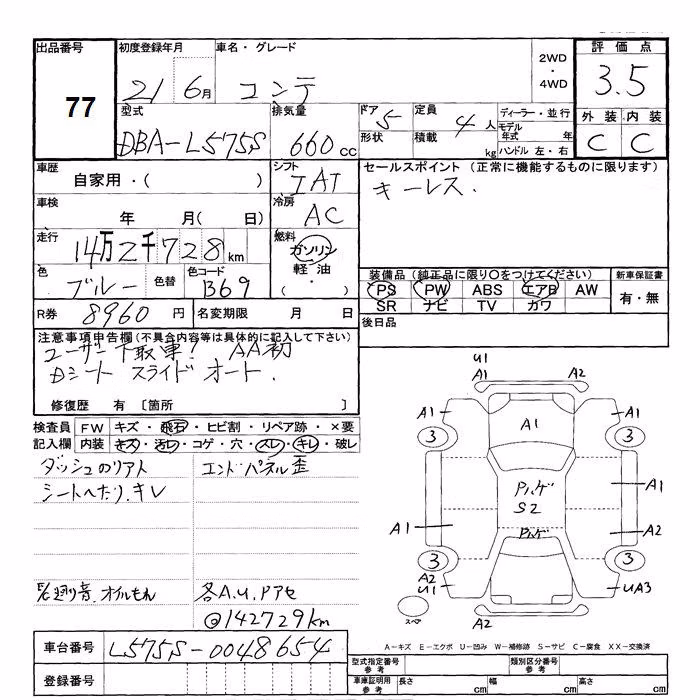 出品番号
77
初度登録年月
21 6月
車名・グレード
コンテ
2WD
・
4WD
評価点
3.5
型式
DBA-L575S
排気量
660cc
ドア
5
形状
定員
4人
積載
kg
ディーラー・並行
モデル年式 年
ハンドル 左・右
外装 内装
C C
車歴
自家用・( )
シフト
IAT
セールスポイント (正常に機能するものに限ります)
キーレス.
車検
年 月( 日)
冷房
AC
走行
14万2千728km
燃料
ガソリン
軽油・
( )
色
ブルー
色替
色コード
B69
装備品 (純正品に限り〇をつけてください)
PS PW ABS エアB AW
SR ナビ TV カワ
新車保証書
有・無
R券 8960円
名変期限 月 日
後日品
注意事項申告欄(不具合内容等は具体的に記入して下さい)
ユーザー下取車! AA初
Dシート スライド オート.
修復歴 有 [箇所 ]
検査員記入欄
FW キズ・飛石・ヒビ割・リペア跡・×要
内装 キズ・汚レ・コゲ・穴・スレ・キレ・破レ
ダッシュのリアト
エンドパネル歪
シートヘたり.キレ
廻り音.オイルもれ
各A.U.Pアセ
@142729km
U1
A1 A2
A1 A1 A1
3 3
Pハゲ
S2
A1
A1 A2
Pハゲ
3 3
A2
U1 UA3
スペ
A2
A-キズ E-エクボ U-凹み W-補修跡 S-サビ C-腐食 XX-交換済
車台番号 L575S-0048654
登録番号
型式指定番号
参考
類別区分番号
参考
車庫証明用
参考
長さ cm
幅 cm
高さ cm